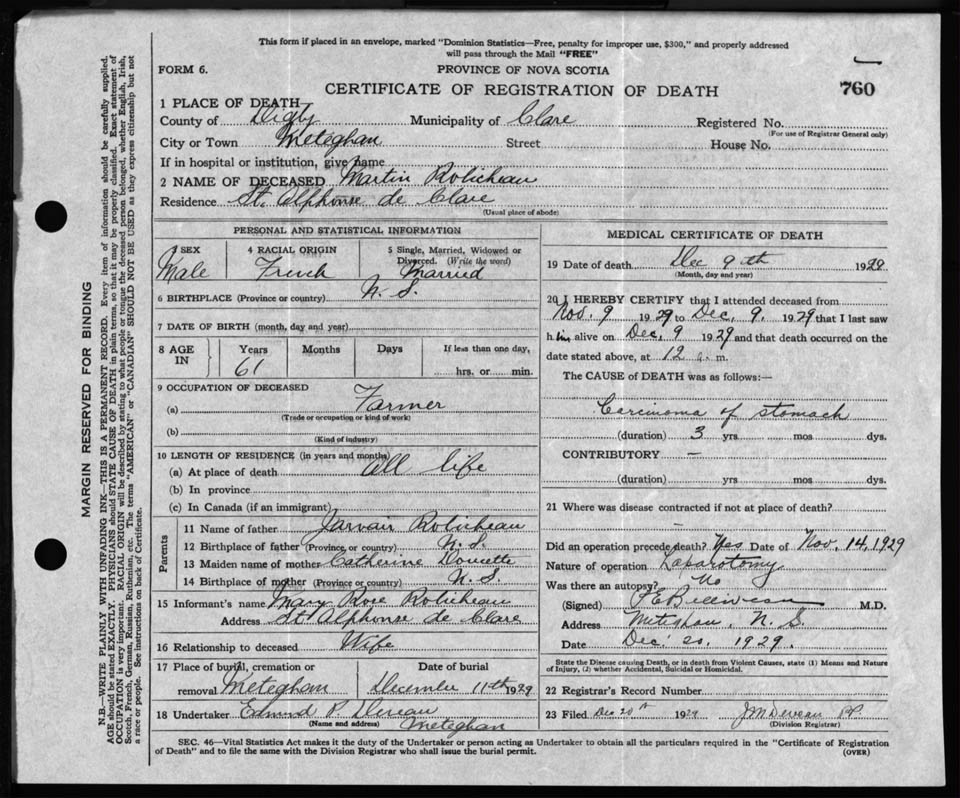 This form if placed in an envelope, marked "Dominion Statistics—Free, penalty for improper use, $300," and properly addressed
will pass through the Mail "FREE"
FORM 6.
PROVINCE OF NOVA SCOTIA
CERTIFICATE OF REGISTRATION OF DEATH
760
1 PLACE OF DEATH
County of Digby Municipality of Clare Registered No.
(For use of Registrar General only)
City or Town Meteghan Street House No.
If in hospital or institution, give name
2 NAME OF DECEASED Martin Robicheau
Residence St. Alphonse de Clare
(Usual place of abode)
PERSONAL AND STATISTICAL INFORMATION
3 SEX
Male
4 RACIAL ORIGIN
French
5 Single, Married, Widowed or
Divorced. (Write the word)
Married
6 BIRTHPLACE (Province or country) N. S.
7 DATE OF BIRTH (month, day and year)
8 AGE IN
Years Months Days If less than one day,
61 hrs. or min.
9 OCCUPATION OF DECEASED
(a) Farmer
(Trade or occupation or kind of work)
(b)
(Kind of industry)
10 LENGTH OF RESIDENCE (in years and months)
(a) At place of death All life
(b) In province
(c) In Canada (if an immigrant)
Parents
11 Name of father Jarvair Robicheau
12 Birthplace of father (Province or country) N. S.
13 Maiden name of mother Catherine Doucette
14 Birthplace of mother (Province or country) N. S.
15 Informant's name Mary Rose Robicheau
Address St Alphonse de Clare
16 Relationship to deceased Wife
17 Place of burial, cremation or
removal Meteghan
Date of burial
December 11th 1929
18 Undertaker Edmund P. Deveau
(Name and address) Meteghan
MEDICAL CERTIFICATE OF DEATH
19 Date of death Dec 9th 1929
(Month, day and year)
20 I HEREBY CERTIFY that I attended deceased from
Nov. 9 1929 to Dec. 9. 1929 that I last saw
him alive on Dec. 9 1929 and that death occurred on the
date stated above, at 12 a. m.
The CAUSE of DEATH was as follows:—
Carcinoma of stomach
(duration) 3 yrs. mos dys.
CONTRIBUTORY —
(duration) yrs. mos. dys.
21 Where was disease contracted if not at place of death?
—
Did an operation precede death? Yes Date of Nov. 14, 1929
Nature of operation Laparotomy
Was there an autopsy? No
(Signed) M.D.
Address Meteghan, N. S.
Date Dec. 20. 1929.
State the Disease causing Death, or in death from Violent Causes, state (1) Means and Nature
of Injury, (2) whether Accidental, Suicidal or Homicidal.
22 Registrar's Record Number
23 Filed Dec 20th 1929 J M Deveau
(Division Registrar)
SEC. 46—Vital Statistics Act makes it the duty of the Undertaker or person acting as Undertaker to obtain all the particulars required in the "Certificate of Registration
of Death" and to file the same with the Division Registrar who shall issue the burial permit.
(OVER)
MARGIN RESERVED FOR BINDING
N.B.—WRITE PLAINLY WITH UNFADING INK—THIS IS A PERMANENT RECORD. Every item of information should be carefully supplied.
AGE should be stated EXACTLY. PHYSICIANS should STATE CAUSE OF DEATH in plain terms, so that it may be properly classified. Exact statement of
OCCUPATION is very important. RACIAL ORIGIN will be described by stating to what people or tongue the deceased person belonged, whether English, Irish,
Scotch, French, German, Russian, Ruthenian, etc. The terms "AMERICAN" or "CANADIAN" SHOULD NOT BE USED as they express citizenship but not
a race or people. See instructions on back of Certificate.